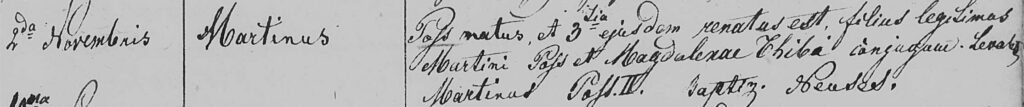 2da Novembris Martinus Poss natus, et 3tia ejusdem renatus est, filius legitimus
Martini Poss et Magdalenae Thiba conjugum. Levans
Martinus Poss. II. Baptiz. Neuszes.